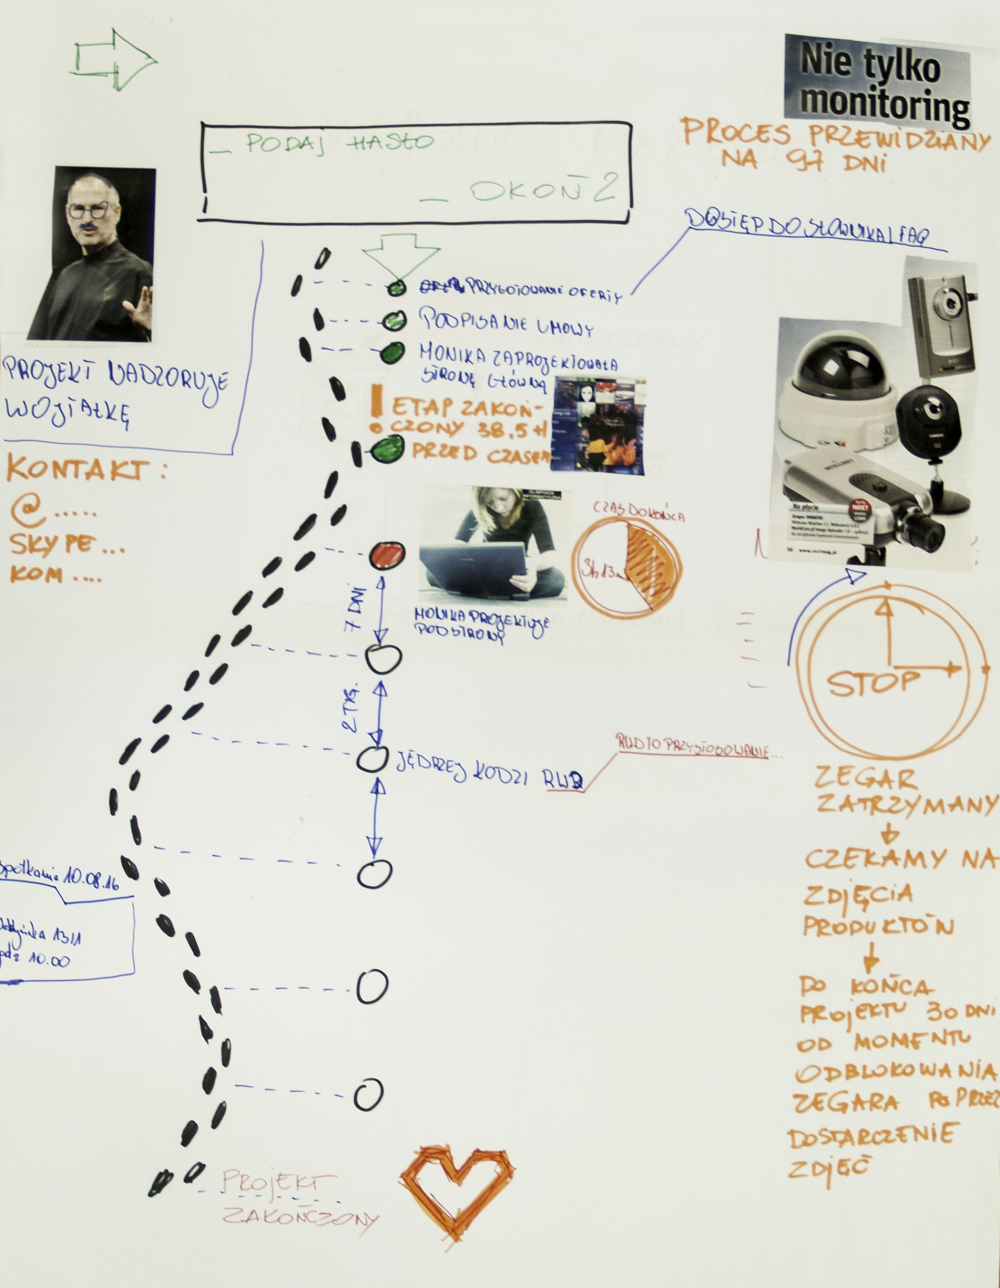 Nie tylko
monitoring
PROCES PRZEWIDZIANY
NA 97 DNI
_ PODAJ HASŁO
_ OKOŃ2
DOSTĘP DO SŁOWNIKA I FAQ
PRZYGOTOWANIE OFERTY
PODPISANIE UMOWY
MONIKA ZAPROJEKTOWAŁA
STRONĘ GŁÓWNĄ
! ETAP ZAKOŃ-
CZONY 38,5 H
PRZED CZASEM
PROJEKT NADZORUJE
WOJTAŁKĘ
KONTAKT:
@.....
SKYPE...
KOM....
CZAS DO KOŃCA
3h 13m
MONIKA PROJEKTUJE
PODSTRONY
7 DNI
2 TYG.
JĘDRZEJ KODZI RWD
RWD TO PRZYSTOSOWANIE...
Na płycie
STOP
ZEGAR
ZATRZYMANY
CZEKAMY NA
ZDJĘCIA
PRODUKTÓW
DO KOŃCA
PROJEKTU 30 DNI
OD MOMENTU
ODBLOKOWANIA
ZEGARA POPRZEZ
DOSTARCZENIE
ZDJĘĆ
spotkanie 10.08.16
13/1
10.00
PROJEKT
ZAKOŃCZONY